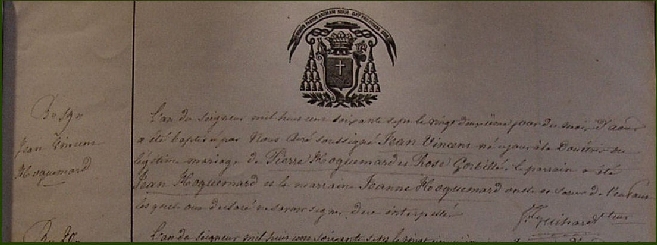 B 89
Jean Vincent
Hocquemard
L'an du Seigneur mil huit cent soixante sept le vingt deuxième jour du mois d'aout
a été baptisé par Nous Curé soussigné Jean Vincent né ce jour à la du
légitime mariage de Pierre Hocquemard et Rose Gorbillé Le parrain a été
Jean Hocquemard et la marraine Jeanne Hocquemard oncle et sœur de l'enfant
lesquels ont déclaré ne savoir signer de ce interpellés
Guihard
L'an du Seigneur mil huit cent soixante sept le